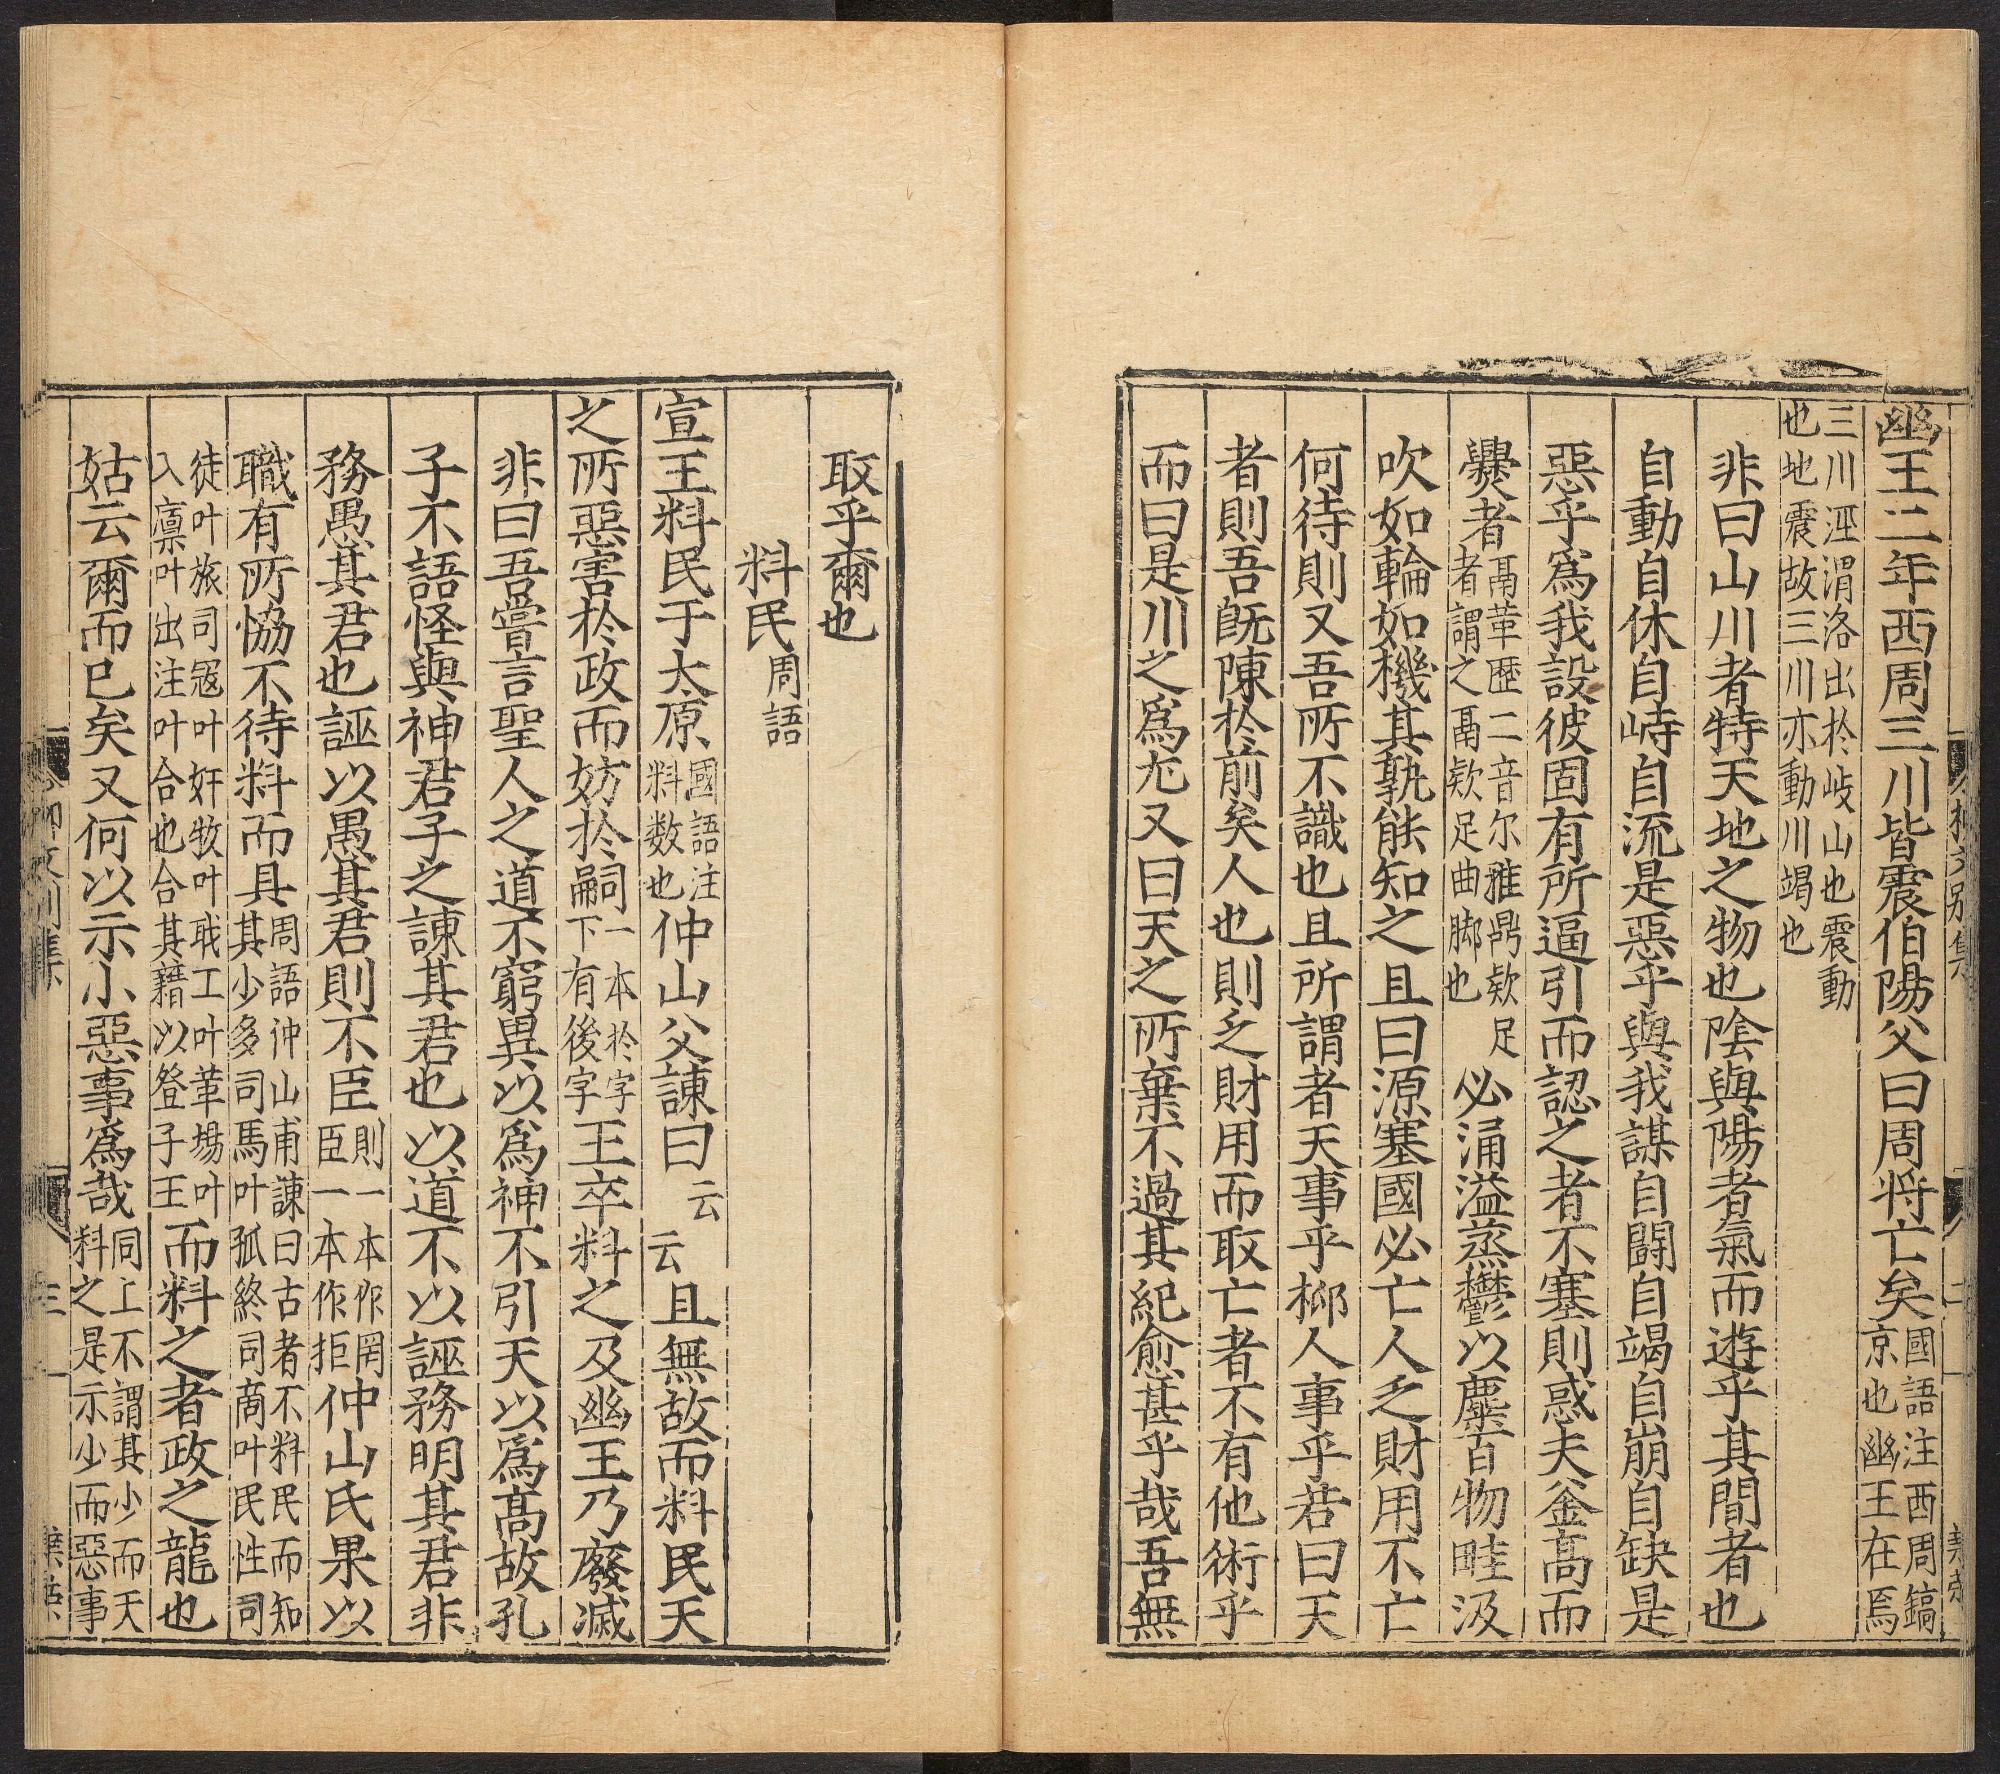 幽王二年西周三川皆震伯陽父曰周將亡矣國語注西周鎬京也幽王在焉
三川涇渭洛出於岐山也震動也地震故三川亦動川竭也
非曰山川者特天地之物也陰與陽者氣而遊乎其間者也
自動自休自峙自流是惡乎與我謀自鬬自竭自崩自缺是
惡乎爲我設彼固有所逼引而認之者不塞則惑夫釜鬲而
爨者鬲革歷二音尔雅鼎欵足者謂之鬲欵足曲脚也必涌溢蒸鬱以麋百物畦汲
吹如輪如機其孰能知之且曰源塞國必亡人乏財用不亡
何待則又吾所不識也且所謂者天事乎抑人事乎若曰天
者則吾旣陳於前矣人也則乏財用而取亡者不有他術乎
而曰是川之爲尤又曰天之所棄不過其紀愈甚乎哉吾無
取乎爾也
料民周語
宣王料民于大原國語注料数也仲山父諫曰云云且無故而料民天
之所惡害於政而妨於嗣一本於字下有後字王卒料之及幽王乃廢滅
非曰吾嘗言聖人之道不窮異以爲神不引天以爲高故孔
子不語怪與神君子之諫其君也以道不以誣務明其君非
務愚其君也誣以愚其君則不臣則一本作罔臣一本作拒仲山氏果以
職有所協不待料而具周語仲山甫諫曰古者不料民而知其少多司馬叶孤終司商叶民性司
徒叶旅司寇叶奸牧叶職工叶革場叶入廩叶出注叶合也合其籍以登于王而料之者政之龍也
姑云爾而已矣又何以示小惡事爲哉同上不謂其少而天料之是示少而惡事
三